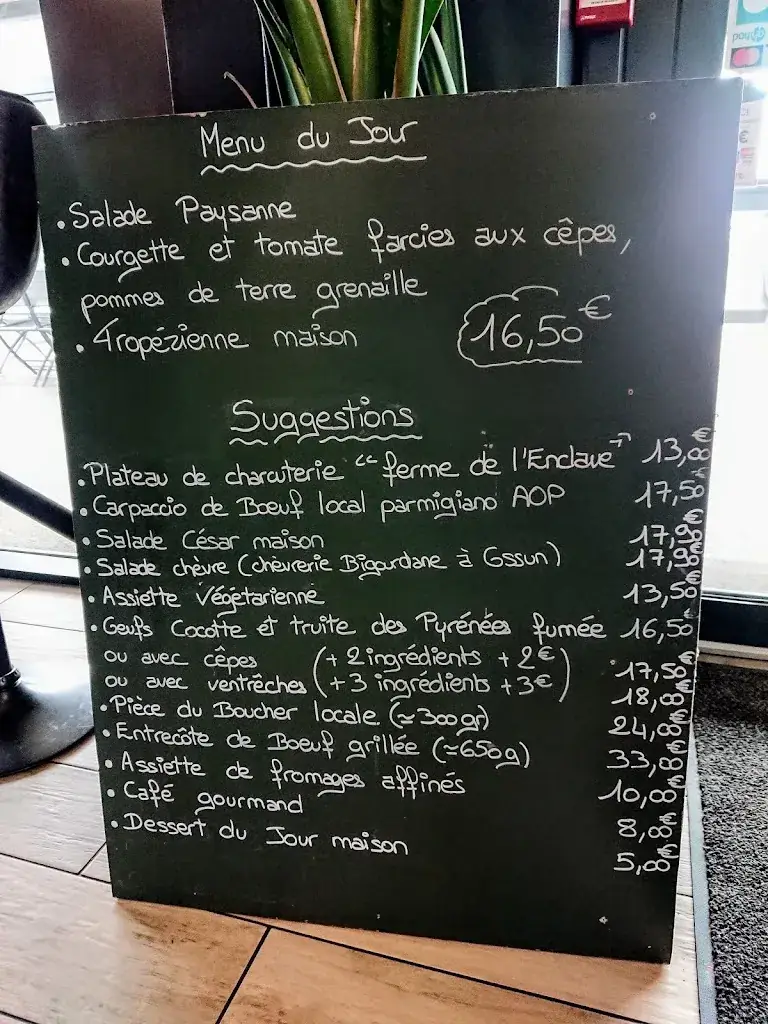 Menu du Jour
• Salade Paysanne
• Courgette et tomate farcies aux cêpes,
pommes de terre grenaille
• Tropézienne maison 16,50€
Suggestions
• Plateau de charcuterie "ferme de l'Enclave" 13,00€
• Carpaccio de Boeuf local parmigiano AOP 17,50€
• Salade César maison 17,90€
• Salade chèvre (chèvrerie Bigourdane à Ossun) 17,90€
• Assiette Végétarienne 13,50€
• Oeufs Cocotte et truite des Pyrénées fumée 16,50€
ou avec cêpes (+ 2 ingrédients + 2€) 17,50€
ou avec ventrêches (+ 3 ingrédients + 3€) 18,00€
• Pièce du Boucher locale (≈ 300gr) 24,00€
• Entrecôte de Boeuf grillée (≈ 650g) 33,00€
• Assiette de fromages affinés 10,00€
• Café gourmand 8,00€
• Dessert du Jour maison 5,00€